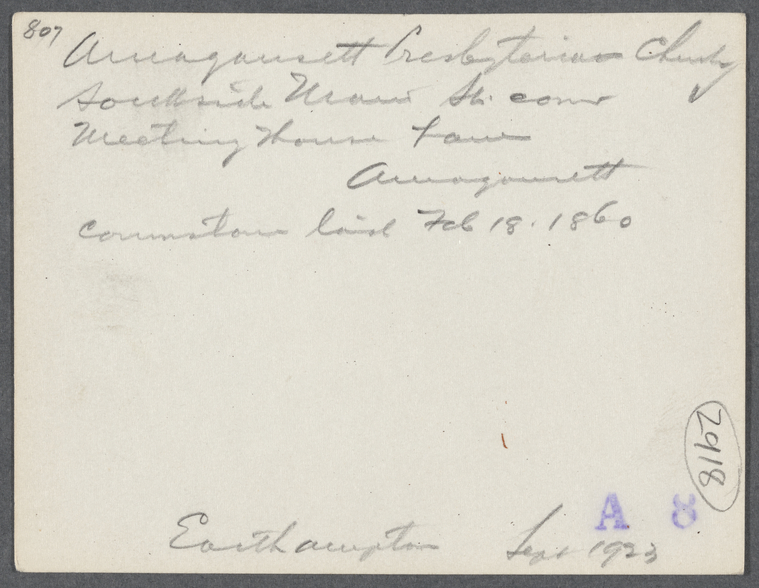 807
Amagansett Presbyterian Church
Southside Main St. corner
Meeting House Lane
Amagansett
Cornerstone laid Feb 18. 1860
2918
A 8
Easthampton Sept 1923